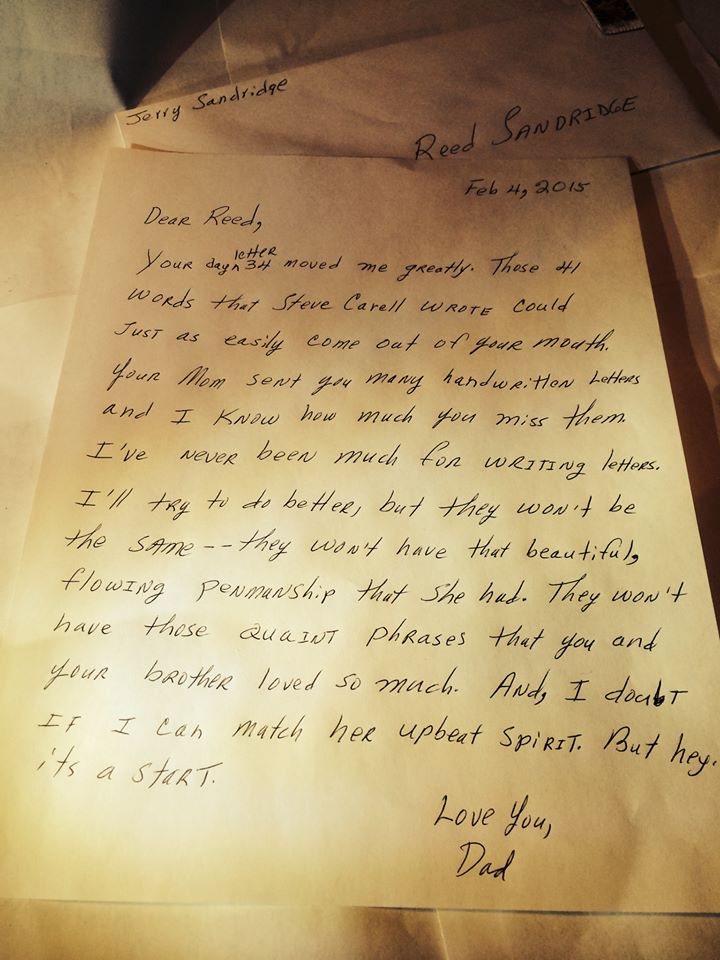 Jerry Sandridge
Reed SANDRIDGE
Feb 4, 2015
Dear Reed,
Your day letter 34 moved me greatly. Those 41
words that Steve Carell wrote could
just as easily come out of your mouth.
Your Mom sent you many handwritten letters
and I know how much you miss them.
I've never been much for writing letters.
I'll try to do better, but they won't be
the same -- they won't have that beautiful,
flowing penmanship that she had. They won't
have those quaint phrases that you and
your brother loved so much. And, I doubt
if I can match her upbeat spirit. But hey.
it's a start.
Love You,
Dad